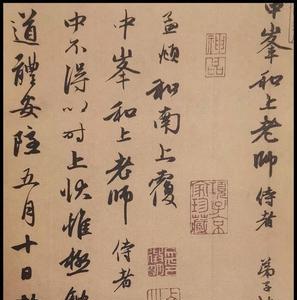 中峯和上老師 侍者 弟子
神品
項子京家珍藏
孟頫和南上覆
中峯和上老師 侍者
中不得以時上狀惟極
道體安隱五月十日